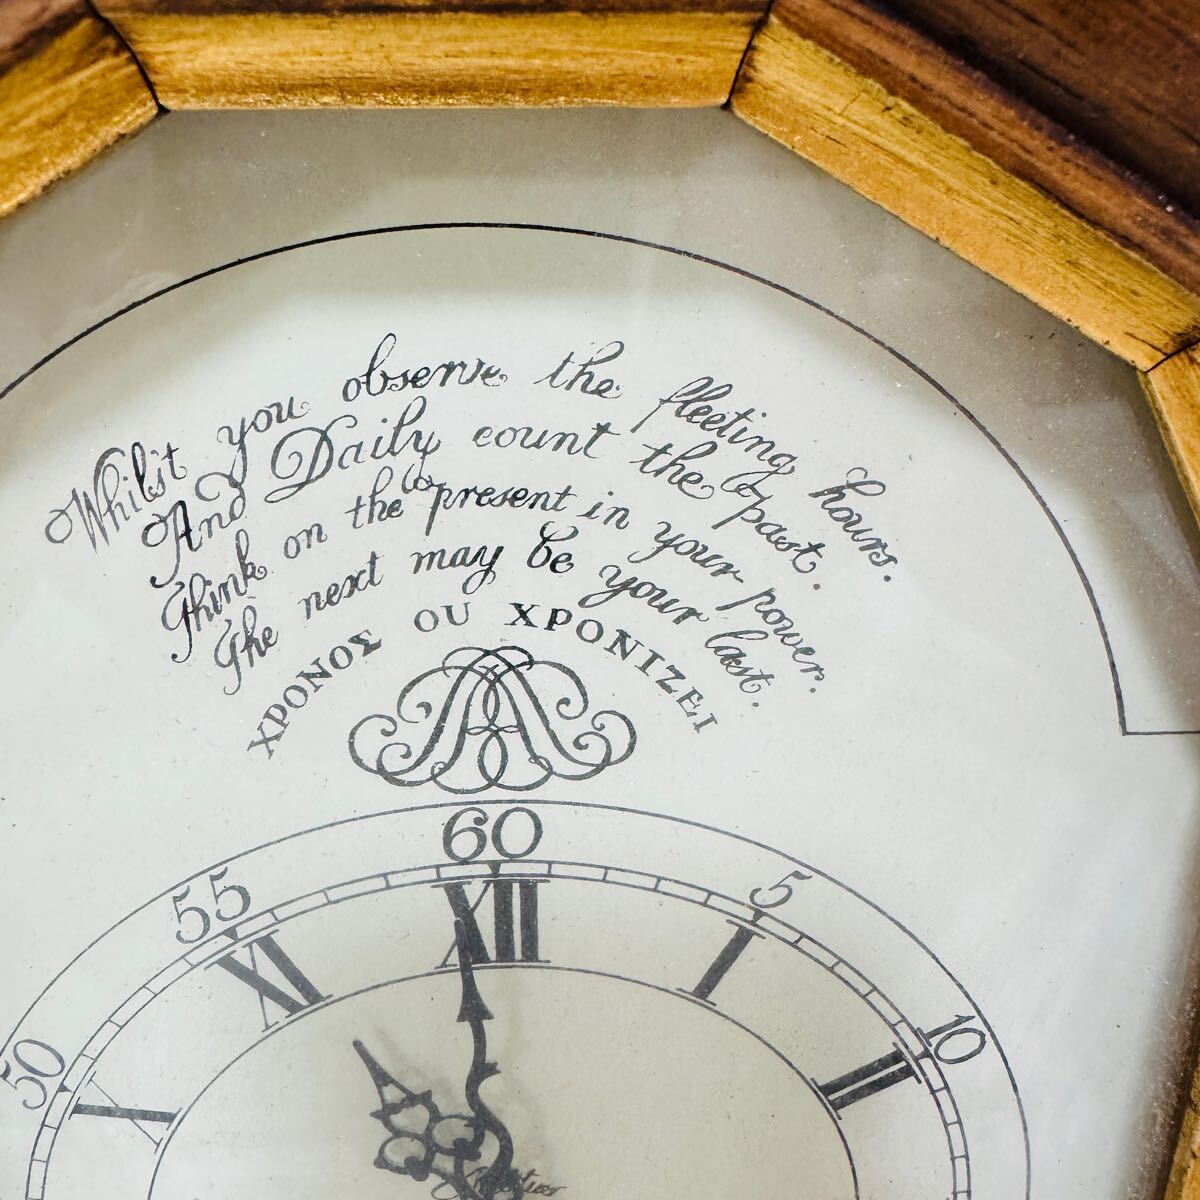 Whilst you observe the fleeting hours.
And Daily count the past.
Think on the present in your power.
The next may be your last.
ΧΡΟΝΟΣ ΟU ΧΡΟΝΙΖΕΙ
60
55
5
50
10
XII
XI
I
X
II